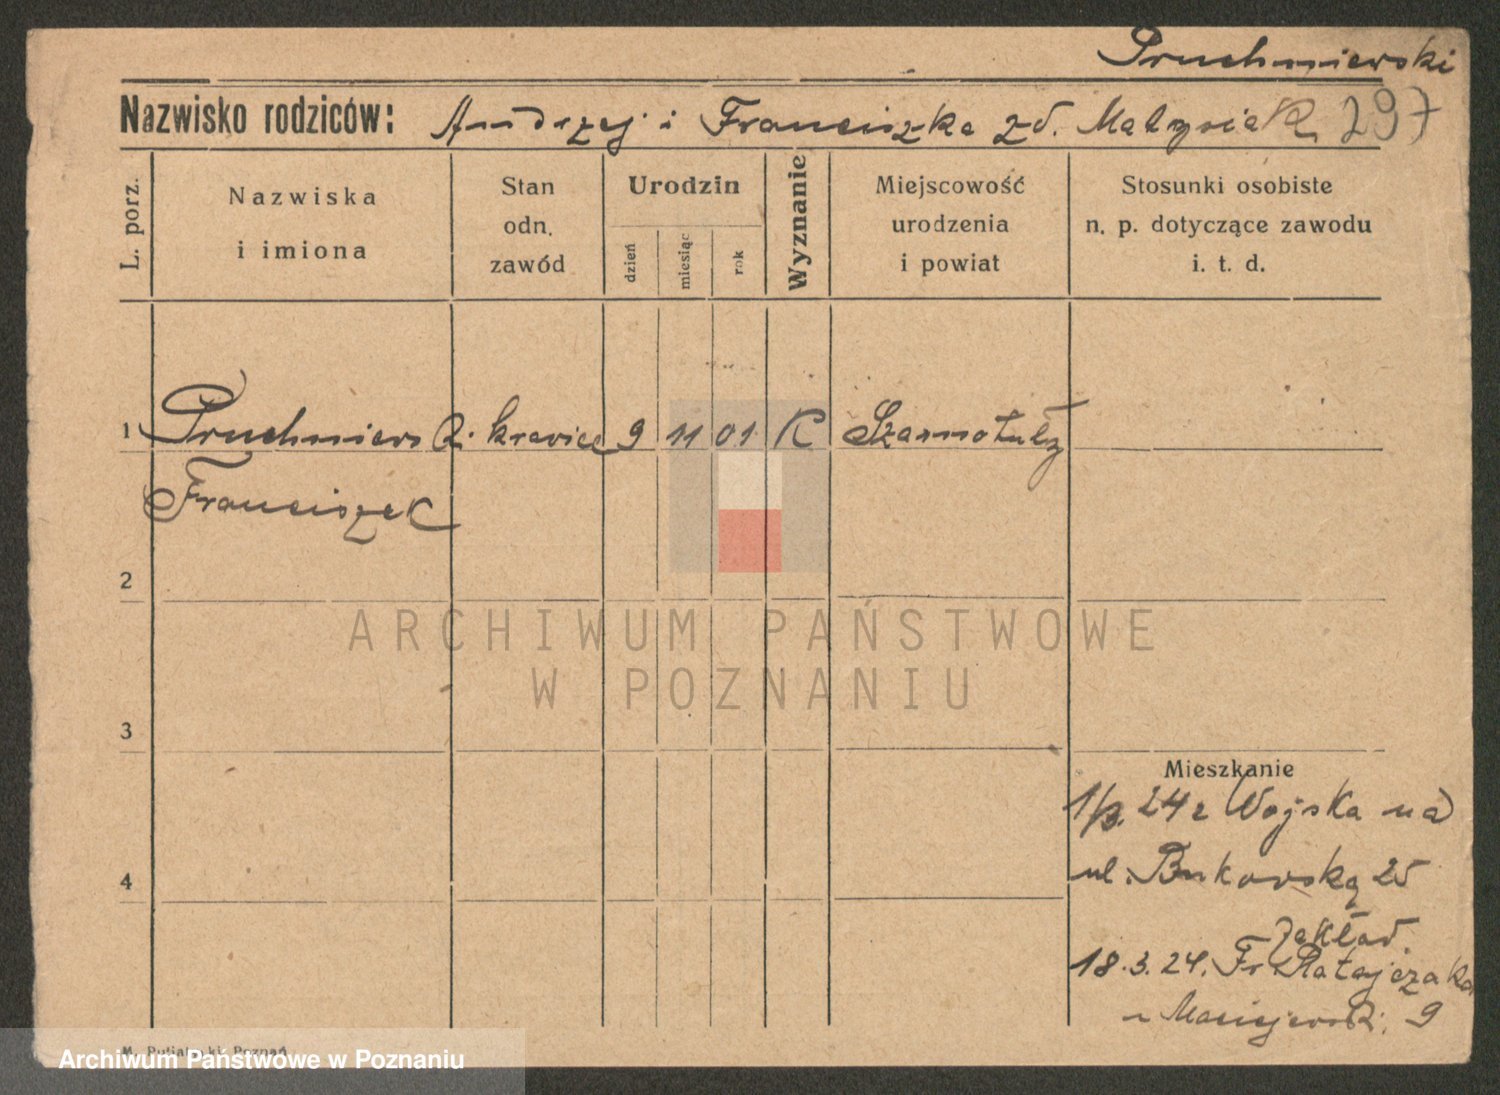 Pruchniewski
Nazwisko rodziców: Andrzej i Franciszka zd. Matysiak 297
L. porz.
Nazwiska
i imiona
Stan
odn.
zawód
Urodzin
dzień
miesiąc
rok
Wyznanie
Miejscowość
urodzenia
i powiat
Stosunki osobiste
n. p. dotyczące zawodu
i. t. d.
1 Pruchniewski krawiec 9 11 01 K Szamotuły
Franciszek
2
3
4
ARCHIWUM PAŃSTWOWE
W POZNANIU
Mieszkanie
1/3. 24 z Wojska na
ul. Bukowską 25
Zakład.
18.3.24. Fr. Ratajczaka
u Maciejewski. 9
M. Putiatycki Poznań
Archiwum Państwowe w Poznaniu